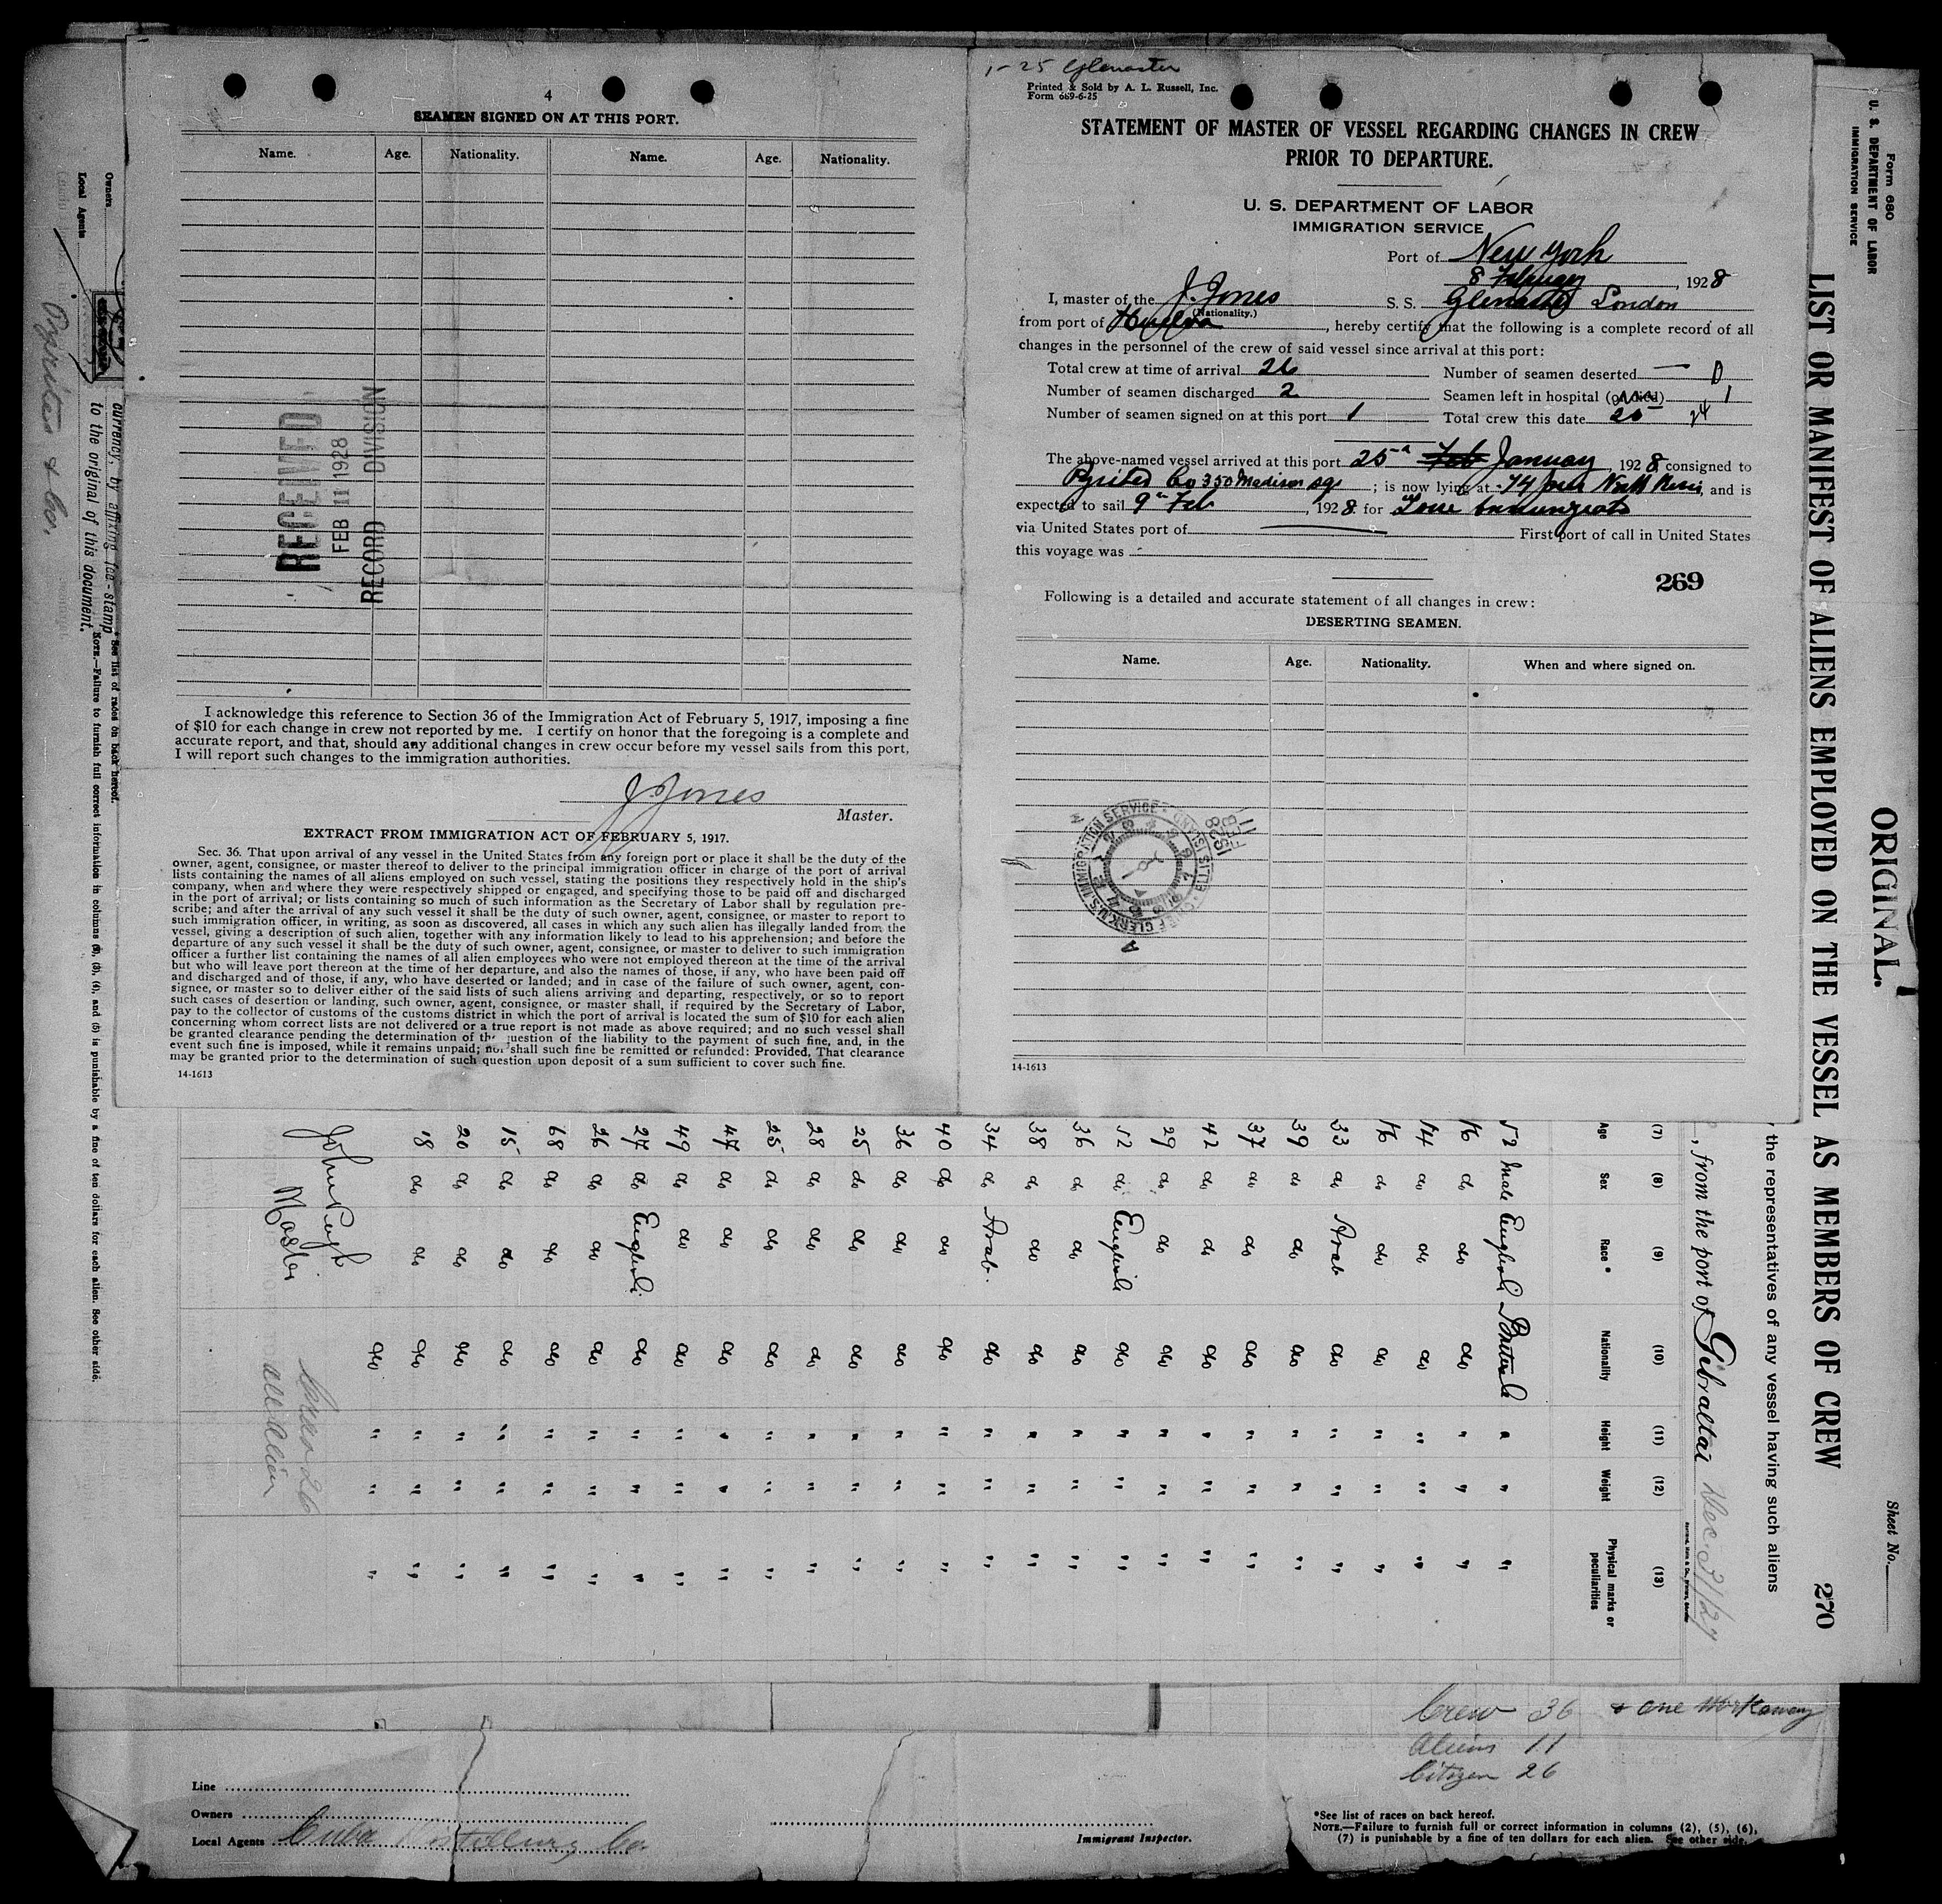 4
SEAMEN SIGNED ON AT THIS PORT.
Name. Age. Nationality. Name. Age. Nationality.
RECEIVED
FEB 11 1928
RECORD DIVISION
I acknowledge this reference to Section 36 of the Immigration Act of February 5, 1917, imposing a fine
of $10 for each change in crew not reported by me. I certify on honor that the foregoing is a complete and
accurate report, and that, should any additional changes in crew occur before my vessel sails from this port,
I will report such changes to the immigration authorities.
J. Jones
Master.
EXTRACT FROM IMMIGRATION ACT OF FEBRUARY 5, 1917.
Sec. 36. That upon arrival of any vessel in the United States from any foreign port or place it shall be the duty of the
owner, agent, consignee, or master thereof to deliver to the principal immigration officer in charge of the port of arrival
lists containing the names of all aliens employed on such vessel, stating the positions they respectively hold in the ship's
company, when and where they were respectively shipped or engaged, and specifying those to be paid off and discharged
in the port of arrival; or lists containing so much of such information as the Secretary of Labor shall by regulation pre-
scribe; and after the arrival of any such vessel it shall be the duty of such owner, agent, consignee, or master to report to
such immigration officer, in writing, as soon as discovered, all cases in which any such alien has illegally landed from the
vessel, giving a description of such alien, together with any information likely to lead to his apprehension; and before the
departure of any such vessel it shall be the duty of such owner, agent, consignee, or master to deliver to such immigration
officer a further list containing the names of all alien employees who were not employed thereon at the time of the arrival
but who will leave port thereon at the time of her departure, and also the names of those, if any, who have been paid off
and discharged and of those, if any, who have deserted or landed; and in case of the failure of such owner, agent, con-
signee, or master so to deliver either of the said lists of such aliens arriving and departing, respectively, or so to report
such cases of desertion or landing, such owner, agent, consignee, or master shall, if required by the Secretary of Labor,
pay to the collector of customs of the customs district in which the port of arrival is located the sum of $10 for each alien
concerning whom correct lists are not delivered or a true report is not made as above required; and no such vessel shall
be granted clearance pending the determination of the question of the liability to the payment of such fine, and, in the
event such fine is imposed, while it remains unpaid; nor shall such fine be remitted or refunded: Provided, That clearance
may be granted prior to the determination of such question upon deposit of a sum sufficient to cover such fine.
14-1613
1-25
Printed & Sold by A. L. Russell, Inc.
Form 689-6-25
STATEMENT OF MASTER OF VESSEL REGARDING CHANGES IN CREW
PRIOR TO DEPARTURE.
U. S. DEPARTMENT OF LABOR
IMMIGRATION SERVICE
Port of New York
8 February, 1928
I, master of the J. Jones S. S. London
(Nationality.)
from port of Huelva, hereby certify that the following is a complete record of all
changes in the personnel of the crew of said vessel since arrival at this port:
Total crew at time of arrival 26 Number of seamen deserted — 0
Number of seamen discharged 2 Seamen left in hospital (or died) 1
Number of seamen signed on at this port 1 Total crew this date 25 24
The above-named vessel arrived at this port 25th Feb January, 1928 consigned to
Pyrites Co 350 Madison ; is now lying at 74 pier North River, and is
expected to sail 9th Feb, 1928 for
via United States port of First port of call in United States
this voyage was
269
Following is a detailed and accurate statement of all changes in crew:
DESERTING SEAMEN.
Name. Age. Nationality. When and where signed on.
IMMIGRATION SERVICE
ELLIS ISLAND
CHIEF CLERK
1928
FEB
11
14-1613
Form 680
U. S. DEPARTMENT OF LABOR
IMMIGRATION SERVICE
ORIGINAL.
Sheet No.
LIST OR MANIFEST OF ALIENS EMPLOYED ON THE VESSEL AS MEMBERS OF CREW 270
, the representatives of any vessel having such aliens
, from the port of Gibraltar Dec. 31/27
(7) (8) (9) (10) (11) (12) (13)
Age Sex Race * Nationality Height Weight Physical marks or peculiarities
52 Male English British " " "
16 do do do " " "
14 do do do " " "
16 do do do " " "
33 do Arab do " " "
39 do do do " " "
37 do do do " " "
42 do do do " " "
29 do do do " " "
52 do English do " " "
36 do do do " " "
38 do do do " " "
34 do Arab. do " " "
40 do do do " " "
36 do do do " " "
25 do do do " " "
28 do do do " " "
25 do do do " " "
47 do do do " " "
49 do do do " " "
27 do English do " " "
26 do do do " " "
68 do do do " " "
15 do do do " " "
20 do do do " " "
18 do do do " " "
do " " "
John Pugh
Master
Crew 26
All Alien
* See list of races on back hereof.
NOTE.—Failure to furnish full correct information in columns (2), (3), (4), and (5) is punishable by a fine of ten dollars for each alien. See other side.
currency, by affixing fee-stamp
to the original of this document.
Owners
Local Agents
Pyrites & Co.
Crew 36 & one Workaway
Aliens 11
Citizen 26
Line
Owners
Local Agents Cuba Distilling Co.
Immigrant Inspector.
*See list of races on back hereof.
NOTE.—Failure to furnish full or correct information in columns (2), (5), (6),
(7) is punishable by a fine of ten dollars for each alien. See other side.